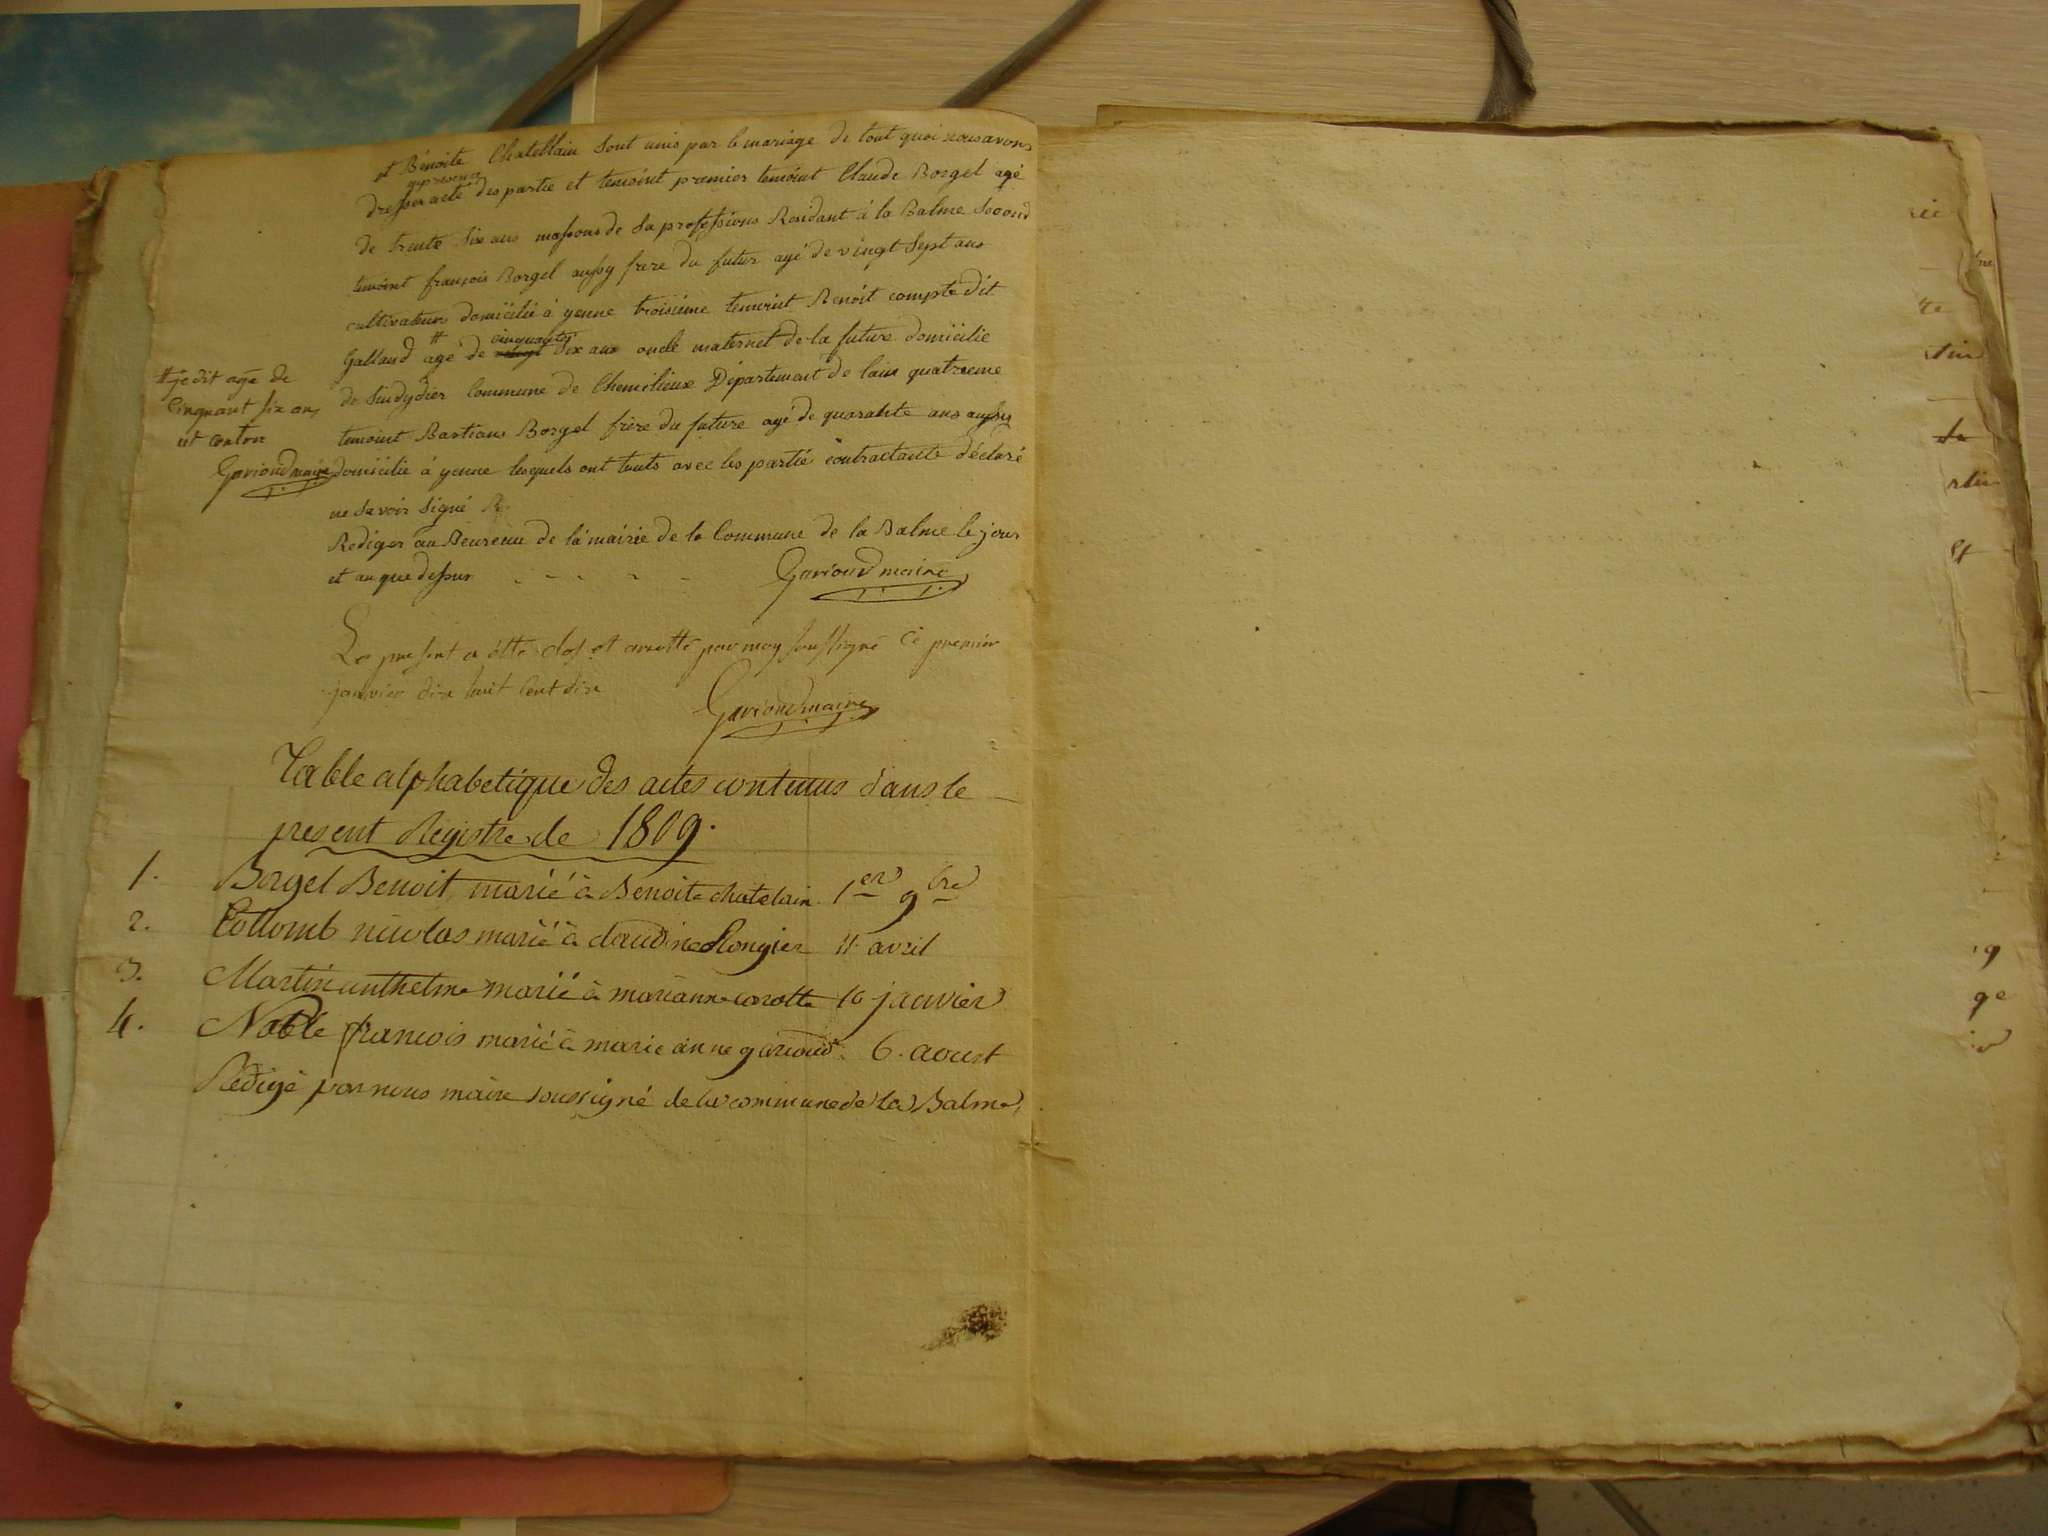 et Bénoite Chatellain sont unis par le mariage de tout quoi nous avons
en presence
dresser acte des partie et temoint premier temoint Claude Borgel agé
de trente six ans massons de sa professions Residant à la Balme second
temoint françois Borgel aussy frere du futur agé de vingt sept ans
cultivateur domicilié à yenne troisiéme temoint Benoît compte dit
cinquante
Galland # agé de vingt six ans oncle maternel de la future domicilie
de Commune de Chemilieux Département de lain quatreeme
temoint Bastians Borgel frère du future agé de quarante ans aussy
domicilié à yenne lesquels ont touts avec les partié contractante déclaré
ne savoir signé
# je dit agé de
Cinquant six ans
Garioud maire
Rediger au Beureau de la mairie de la Commune de la Balme le jour
et an que dessur
Garioud maire
Le present a étté clos et arretté par moy soussigné Ce premier
janvier dix huit Cent dix
Garioud maire
Table alphabetique des actes contenus dans le
present Régistre de 1809.
1. Borgel Benoit, marié à Benoite chatelain 1er 9bre
2. Collomb nicolas marié à claudine Rongier 11 avril
3. Martin anthelme marié à marianne carotte 10 janvier
4. Noble francois marié à marie anne garioud. 6. aoust
Rédigé par nous maire soussigné de la commune de La Balme